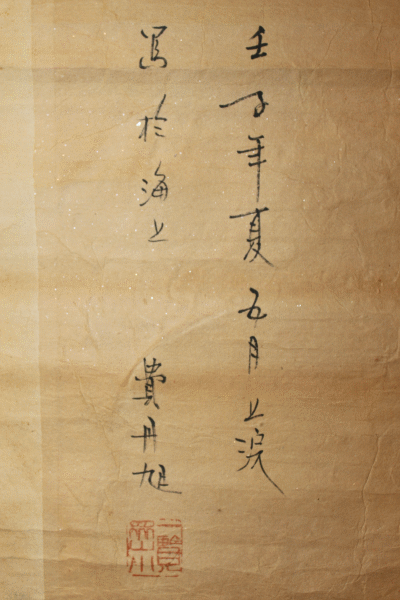 壬子年夏五月上浣
寫於海上 費丹旭